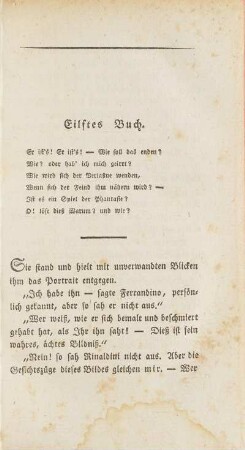 Eilftes Buch.
Er ist's! Er ist's! — Wie soll das enden?
Wie? oder hab' ich mich geirrt?
Wie wird sich der Verfaßwe wenden,
Wenn sich der Feind ihm nähern wird? —
Ist es ein Spiel der Phantasie?
O! löst dieß Warum? und wie?
Sie stand und hielt mit unverwandten Blicken
ihm das Portrait entgegen.
„Ich habe ihn — sagte Ferrandino, persön-
lich gekannt, aber so sah er nicht aus.“
„Wer weiß, wie er sich bemalt und beschmiert
gehabt hat, als Ihr ihn saht! — Dieß ist sein
wahres, ächtes Bildniß.“
„Nein! so sah Rinaldini nicht aus. Aber die
Gesichtszüge dieses Bildes gleichen mir. — Wer